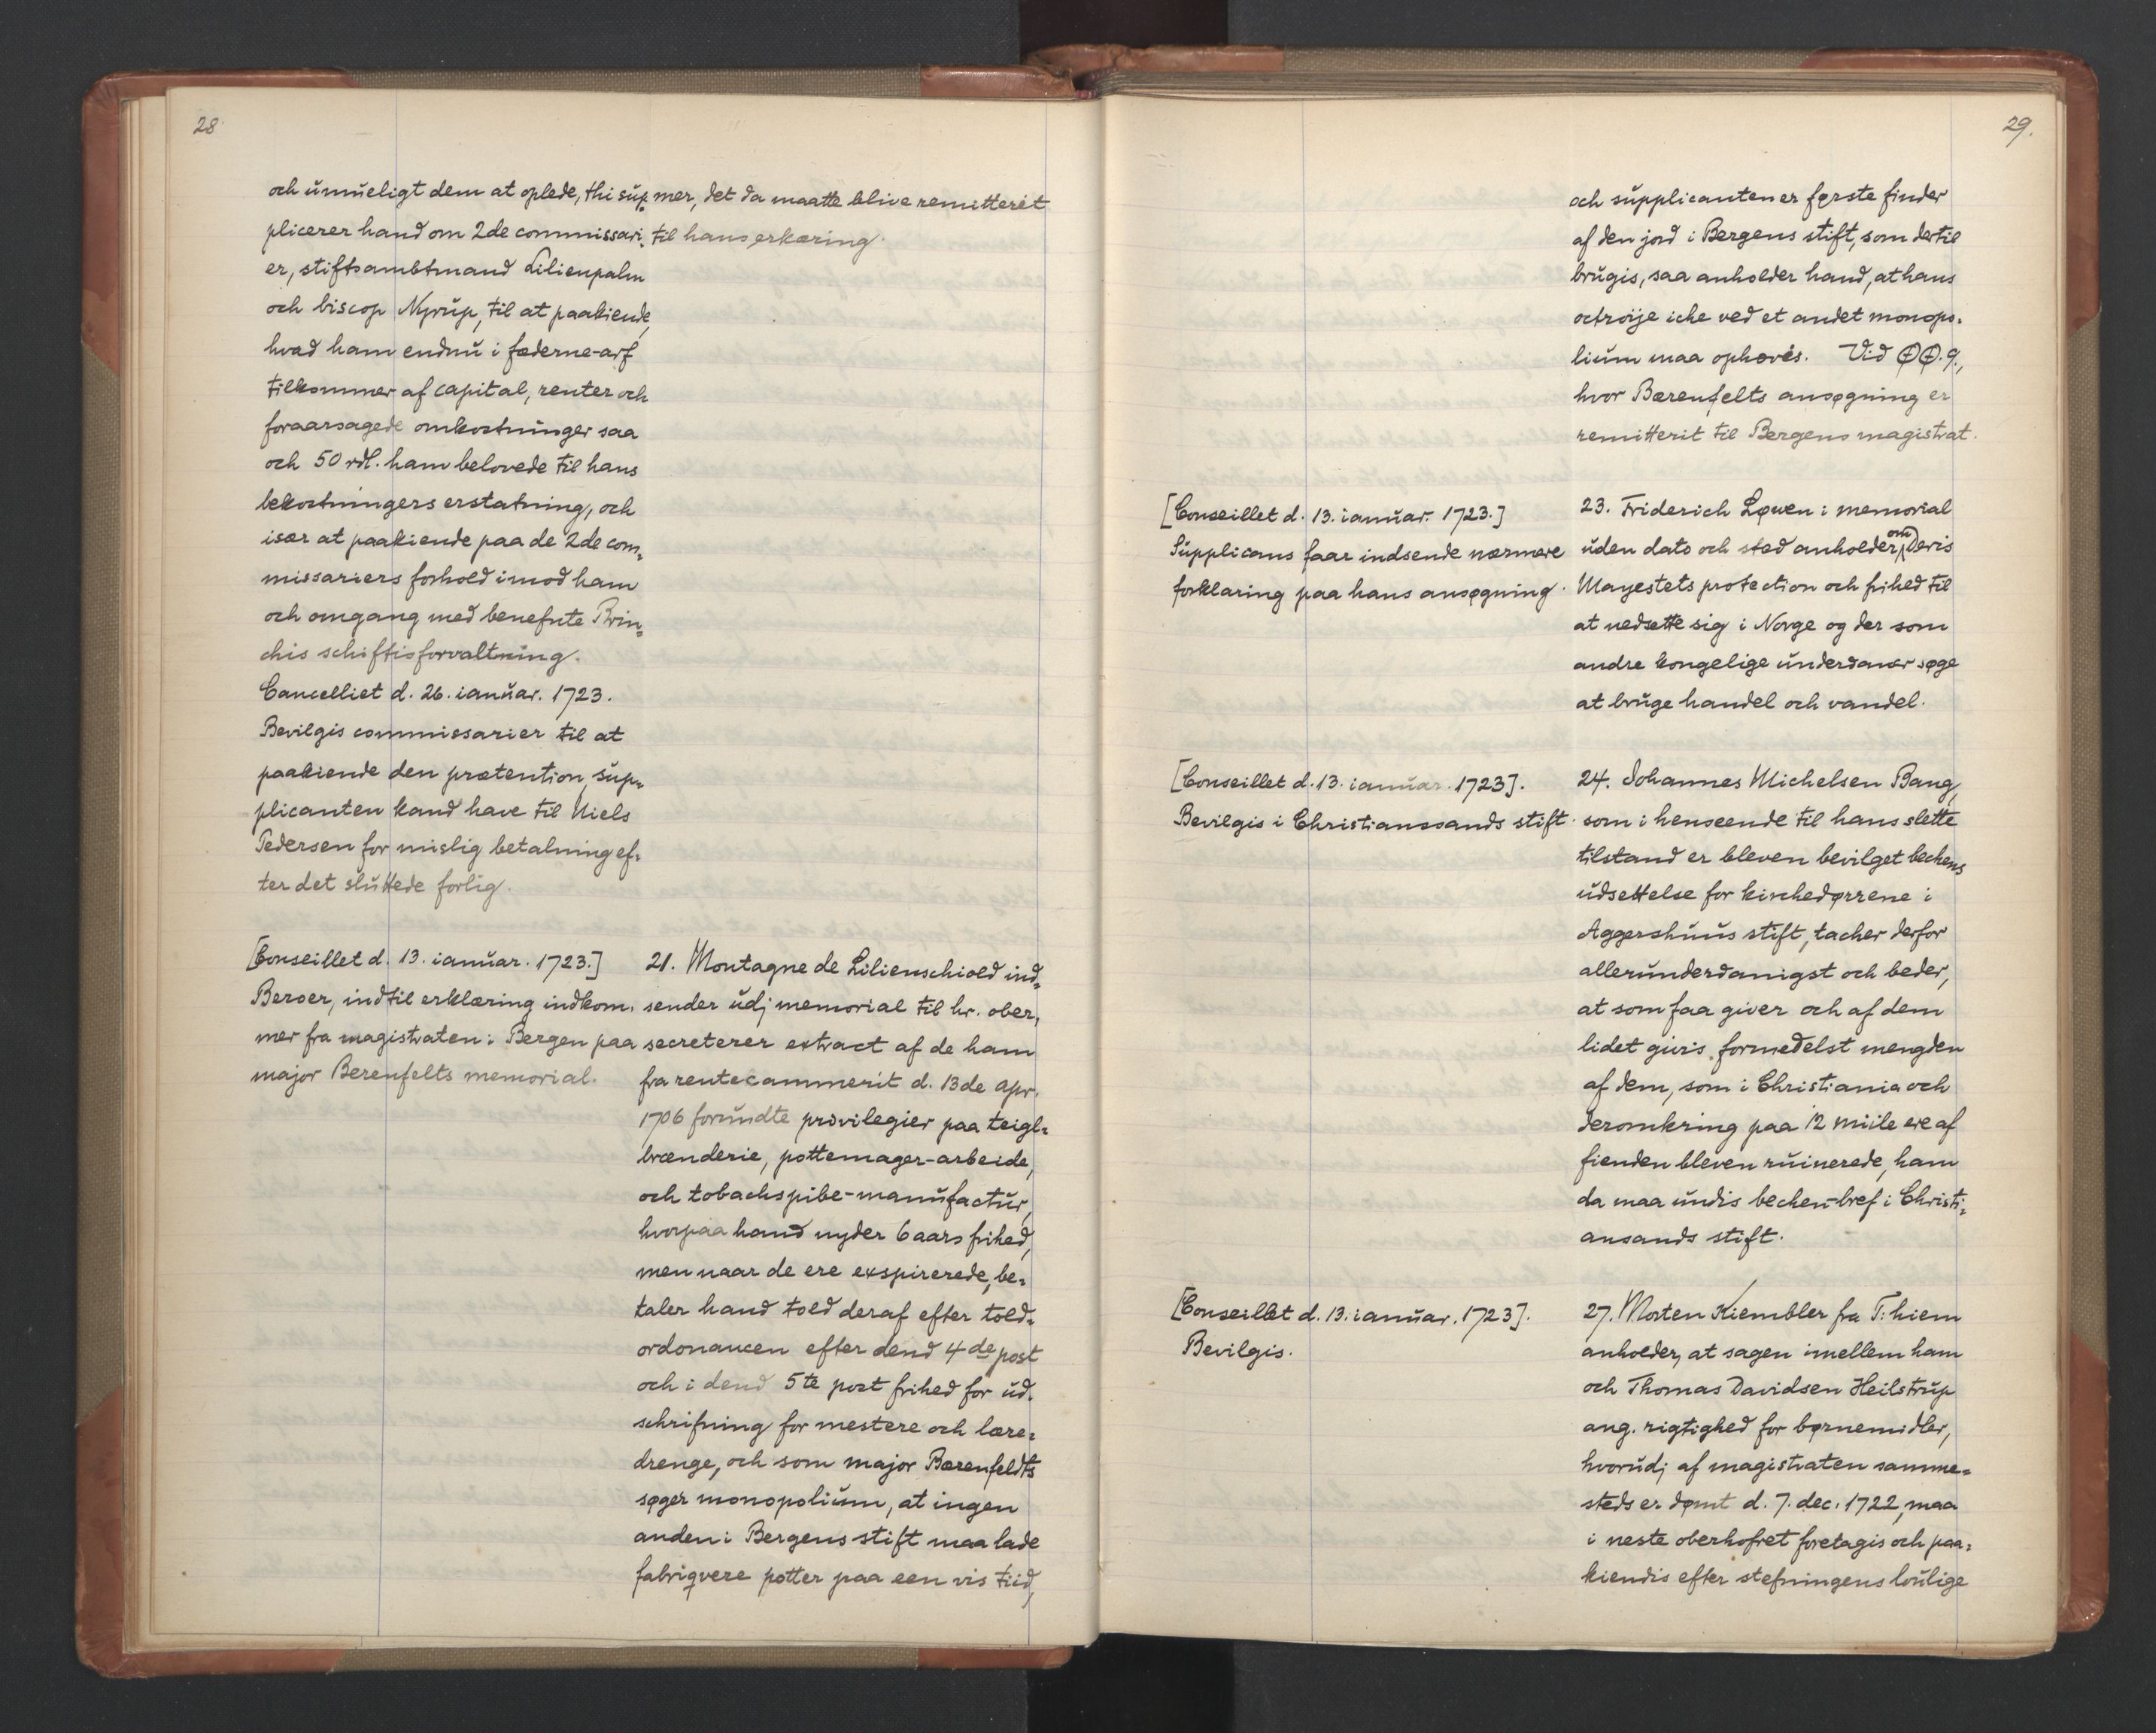 28
och unmueligt dem at oplede, thi sup-
plicerer hand om 2de commissari-
er, stiftsambtmand Lilienpalm
och biscop Nyrup, til at paakiende,
hvad ham endnu i fæderne-arf
tilkommer af capital, renter och
foraarsagede omkostninger saa
och 50 rdl. ham belovede til hans
bekostningers erstatning, och
især at paakiende paa de 2de com-
missariers forhold imod ham
och omgang med benefnte Brin-
chis schiftisforvaltning.
Cancelliet d. 26. ianuar. 1723.
Bevilgis commissarier til at
paakiende den prætention, sup-
plicanten kand have til Niels
Pedersen for mislig betalning ef-
ter det sluttede forlig.
mer, det da maatte blive remitterit
til hans erkæring.
[Conseillet d. 13. ianuar. 1723.]
Beroer, indtil erklæring indkom-
mer fra magistraten i Bergen paa
major Berenfelts memorial.
21. Montagne de Lilienschiold ind-
sender udj memorial til hr. ober-
secreterer extract af de ham
fra rentecammerit d. 13de apr.
1706 forundte privilegier paa teigl-
brænderie, pottemager-arbeide,
och tobachspibe-manufactur,
hvorpaa hand nyder 6 aars frihed,
men naar de ere exspirerede, be-
taler hand told deraf efter told-
ordonancen efter dend 4de post
och i dend 5te post frihed for ud-
schrifning for mestere och lære-
drenge, och som major Bærenfeldts
søger monopolium, at ingen
anden i Bergens stift maa lade
fabriqvere potter paa een vis tiid,
29.
och supplicanten er første finder
af den jord i Bergens stift, som dertil
brugis, saa anholder hand, at hans
octroije iche ved et andet monopo-
lium maa ophævés. Vid ƟƟ. 9.,
hvor Bærenfelts ansøgning er
remitterit til Bergens magistrat.
[Conseillet d. 13. ianuar. 1723.]
Supplicans faar indsende nærmere
forklaring paa hans ansøgning.
23. Friderich Løwen i memorial
uden dato och sted anholder om Deris
Mayestets protection och frihed til
at nedsette sig i Norge og der som
andre kongelige underdaner søge
at bruge handel och vandel.
[Conseillet d. 13. ianuar. 1723].
Bevilgis i Christianssands stift.
24. Johannes Michelsen Bang,
som i henseende til hans slette
tilstand er bleven bevilget bechens
udsettelse for kirchedørrene i
Aggershuus stift, tacher derfor
allerunderdanigst och beder,
at som faa giver och af dem
lidet givis formedelst mengden
af dem, som i Christiania och
deromkring paa 12 miile ere af
fienden bleven ruinerede, ham
da maa undis bechen-bref i Christi-
ansands stift.
[Conseillet d. 13. ianuar. 1723].
Bevilgis.
27. Morten Kiembler fra T:hiem
anholder, at sagen imellem ham
och Thomas Davidsen Heilstrup
ang. rigtighed for børnemidler,
hvorudj af magistraten samme-
steds er dømt d. 7. dec. 1722, maa
i neste oberhofret foretagis och paa-
kiendis efter stefningens loulige